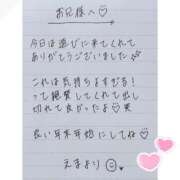 お兄様へ♡
今日は遊びに来てくれて
ありがとうございました
これは気持ちよすぎる!
って絶賛してくれて出し
切れて良かったよ♡笑
良い年末年始にしてね♡
えまより